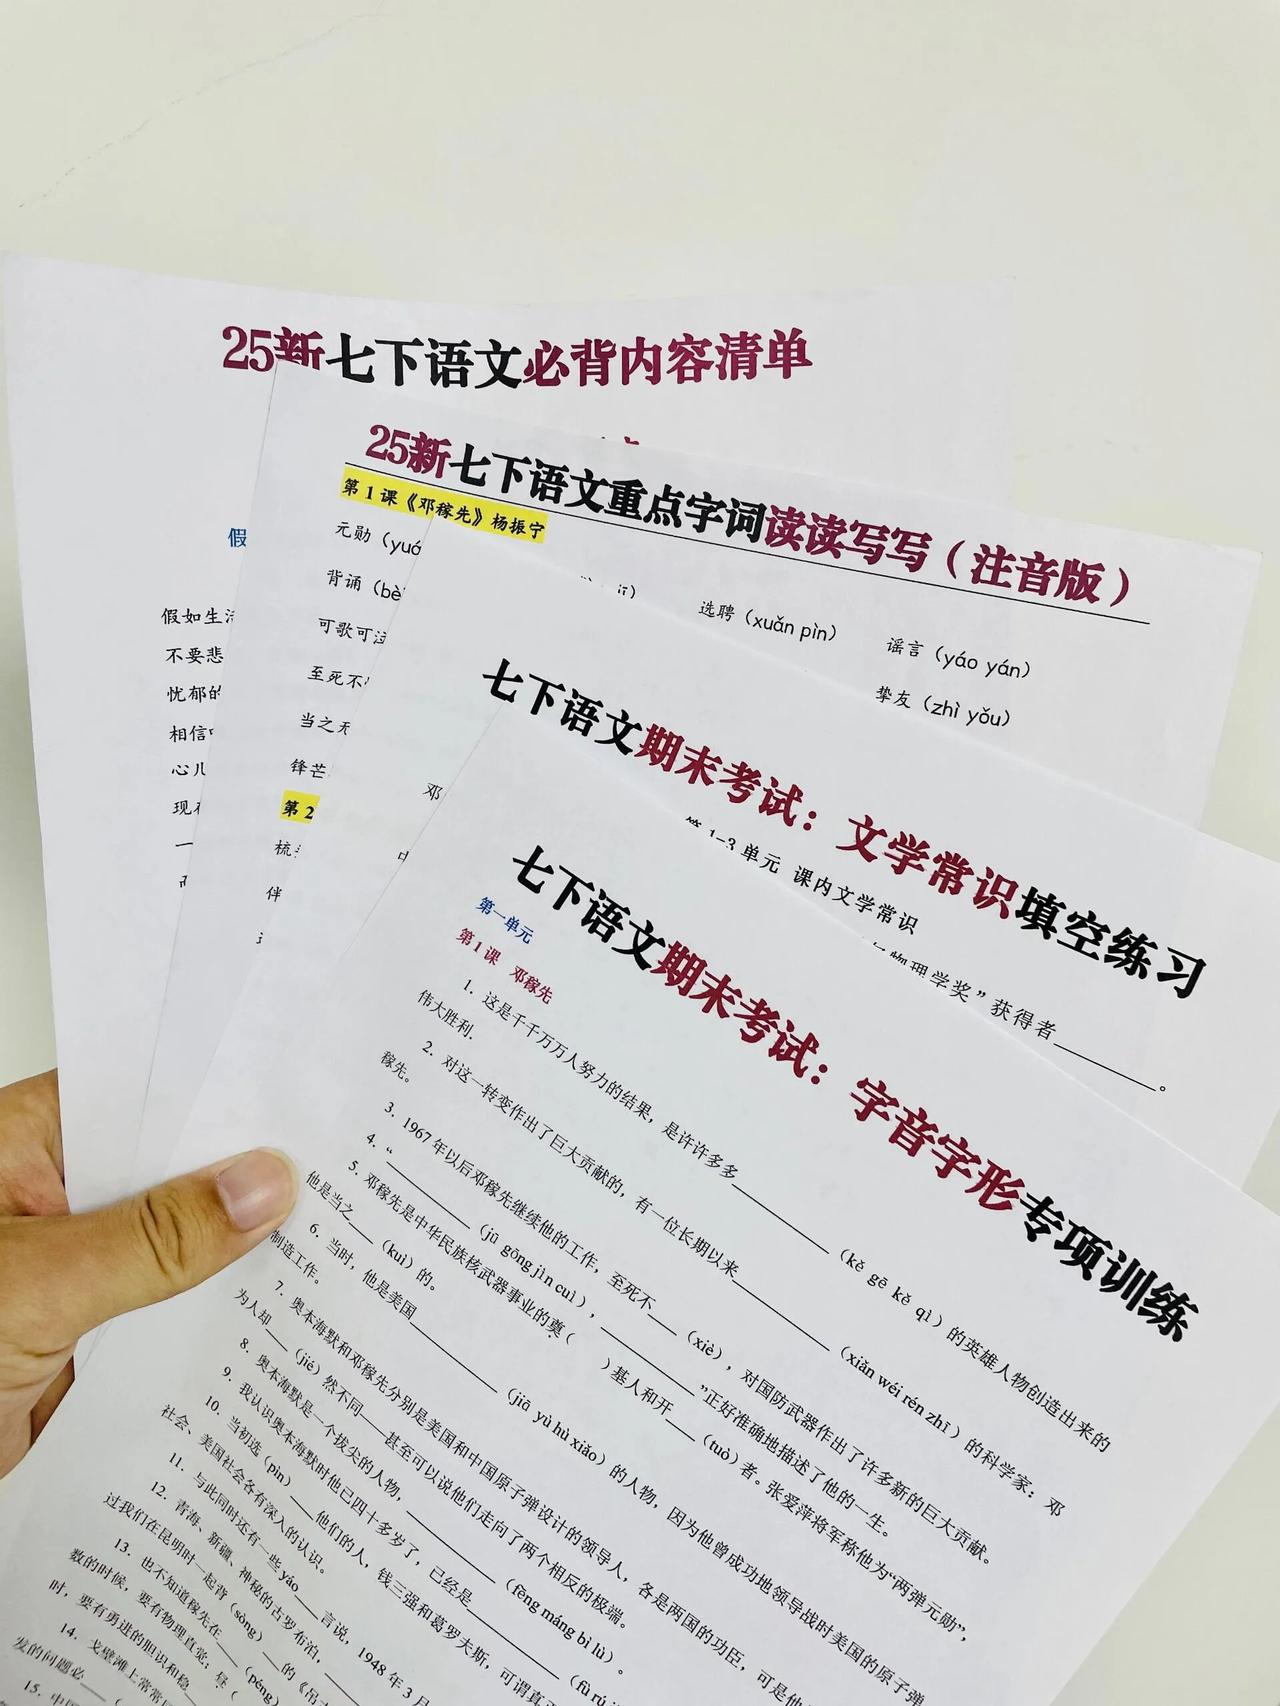 25新七下语文必背内容清单
假
假如生活
不要悲
忧郁的
相信
心儿
现在
一
25新七下语文重点字词读读写写（注音版）
第1课《邓稼先》杨振宁
元勋（yuá
选聘（xuǎn pìn）
谣言（yáo yán）
背诵（bè
挚友（zhì yǒu）
可歌可泣
至死不
当之无
锋芒
第2
梳
伴
七下语文期末考试：文学常识填空练习
第1-3单元 课内文学常识
邓
物理学奖”获得者______。
七下语文期末考试：字音字形专项训练
第一单元
第1课 邓稼先
1. 这是千千万万人努力的结果，是许许多多______（kě gē kě qì）的英雄人物创造出来的
伟大胜利.
2. 对这一转变作出了巨大贡献的，有一位长期以来______（xiǎn wéi rén zhī）的科学家：邓
稼先。
3. 1967年以后邓稼先继续他的工作，至死不___（xiè），对国防武器作出了许多新的巨大贡献。
4. “______（jū gōng jìn cuì），______”正好准确地描述了他的一生。
5. 邓稼先是中华民族核武器事业的奠（ ）基人和开___（tuò）者。张爱萍将军称他为“两弹元勋”，
他是当之___（kuì）的。
6. 当时，他是美国______（jiā yù hù xiǎo）的人物，因为他曾成功地领导战时美国的原子弹
制造工作。
7. 奥本海默和邓稼先分别是美国和中国原子弹设计的领导人，各是两国的功臣，可是他
为人却___（jié）然不同___甚至可以说他们走向了两个相反的极端。
8. 奥本海默是一个拔尖的人物，______（fēng máng bì lù）。
9. 我认识奥本海默时他已四十多岁了，已经是______（fù rú
10. 当初选（pìn）___他们的人，钱三强和葛罗夫斯，可谓真正
社会、美国社会各有深入的认识。
11. 与此同时还有一些yáo___言说，1948年3月
12. 青海、新疆、神秘的古罗布泊，
过我们在昆明时一起背（sòng）___的《吊古
13. 也不知道稼先在___（péng）
数的时候，要有物理直觉；昼（
时，要有勇进的胆识和稳
14. 戈壁滩上常常
发的问题必___（
15. 中国